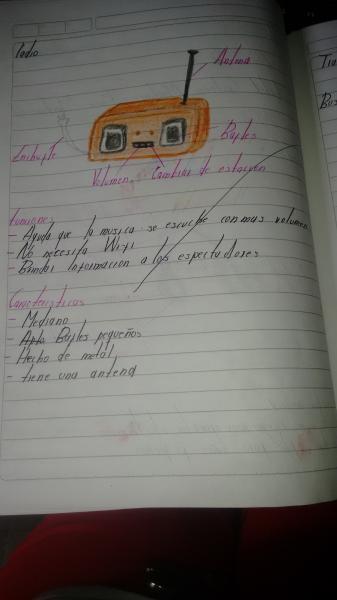 Radio
Antena
Enchufe
Bafles
Volumen
Cambiar de estacion
Funciones
- Ayuda que la musica se escuche con mas volumen
- No necesita Wifi
- Brindar informacion a los espectadores
Caracteristicas
- Mediano
- Bafles pequeños
- Hecho de metal
- tiene una antena